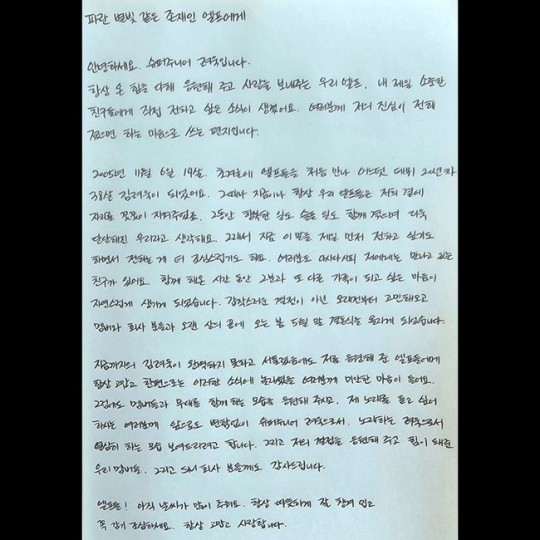 파란 별빛 같은 존재인 엘프에게
안녕하세요. 슈퍼주니어 려욱입니다.
항상 온 힘을 다해 응원해 주고 사랑을 보내주는 우리 엘프, 내 제일 소중한
친구들에게 직접 전하고 싶은 소식이 생겼어요. 여러분께 저의 진심이 전해
졌으면 하는 마음으로 쓰는 편지입니다.
2005년 11월 6일 19살. 초겨울에 엘프들을 처음 만나 어느덧 데뷔 20년차
38살 김려욱이 되었어요. 그때나 지금이나 항상 우리 엘프들은 저희 곁에
자리를 꿋꿋이 지켜주었죠. 그동안 행복한 일도 슬픈 일도 함께 겪으며 더욱
단단해진 우리라고 생각해요. 그래서 지금 이 말을 제일 먼저 전하고 싶기도
하면서 전하는 게 더 조심스럽기도 해요. 여러분도 아시다시피 저에게는 만나고 있는
친구가 있어요. 함께 해온 시간 동안 그분과 또 다른 가족이 되고 싶은 마음이
자연스럽게 생기게 되었습니다. 갑작스러운 결정이 아닌 오래전부터 고민해오고
멤버와 회사 분들과 오랜 상의 끝에 오는 봄 5월 말 결혼식을 올리게 되었습니다.
지금까지의 김려욱이 완벽하지 못하고 서툴렀음에도 저를 응원해 준 엘프들에게
항상 고맙고 한편으로는 이러한 소식에 놀라셨을 여러분께 미안한 마음이 들어요.
그럼에도 멤버들과 무대를 함께 하는 모습을 응원해 주시고, 제 노래를 듣고 싶어
하시는 여러분께 앞으로도 변함없이 슈퍼주니어 려욱으로서, 노래하는 려욱으로서
열심히 하는 모습 보여드리려고 합니다. 그리고 저의 결정을 응원해 주고 힘이 돼준
우리 멤버들, 그리고 SM 회사 분들께도 감사드립니다.
엘프들! 아직 날씨가 많이 추워요. 항상 따뜻하게 잘 챙겨 입고
꼭 감기 조심하세요. 항상 고맙고 사랑합니다.